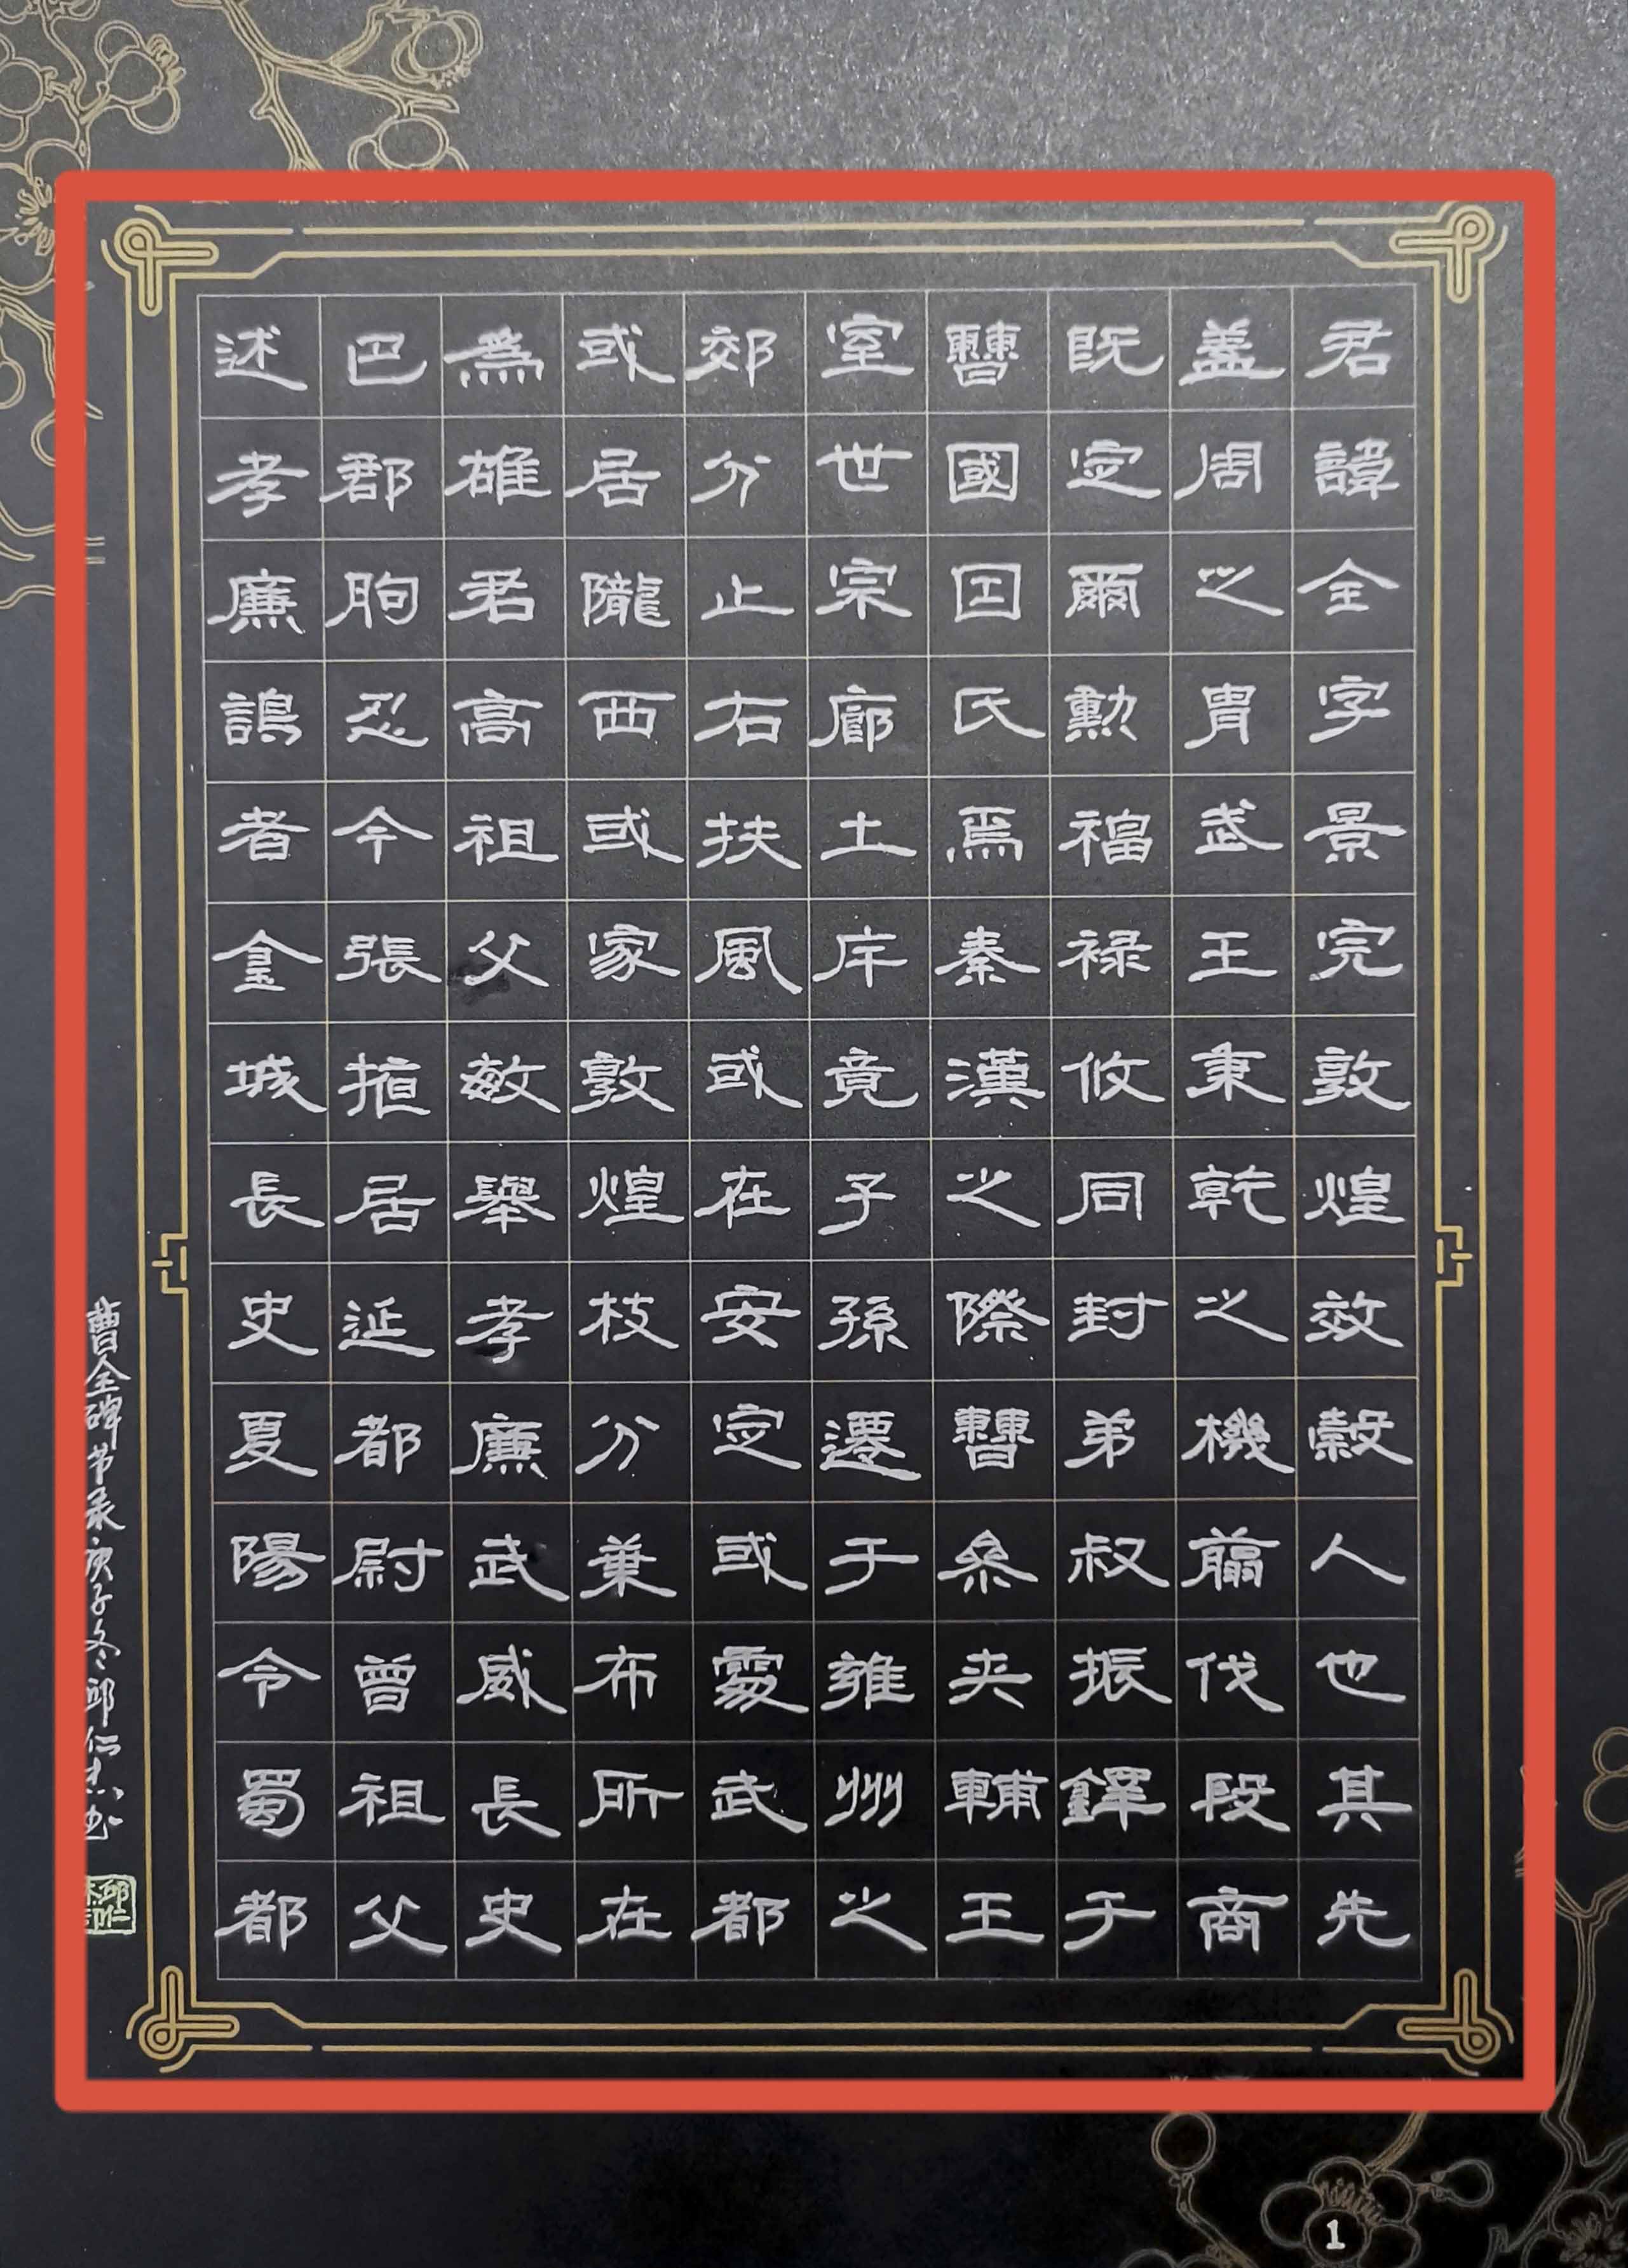 君諱全字景完敦煌效穀人也其先
蓋周之胄武王秉乾之機翦伐殷商
既定爾勲福禄攸同封弟叔振鐸于
曹國因氏焉秦漢之際曹參夾輔王
室世宗廓土斥竟子孫遷于雍州之
郊分止右扶風或在安定或處武都
或居隴西或家敦煌枝分葉布所在
為雄君高祖父敏舉孝廉武威長史
巴郡朐忍令張掖居延都尉曾祖父
述孝廉謁者金城長史夏陽令蜀都
曹全碑节录庚子冬邱仁杰书
邱仁杰印
1